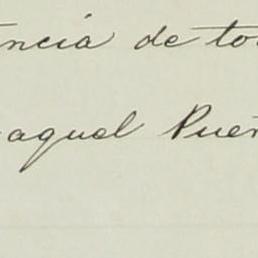 encia de to
aquel Puer